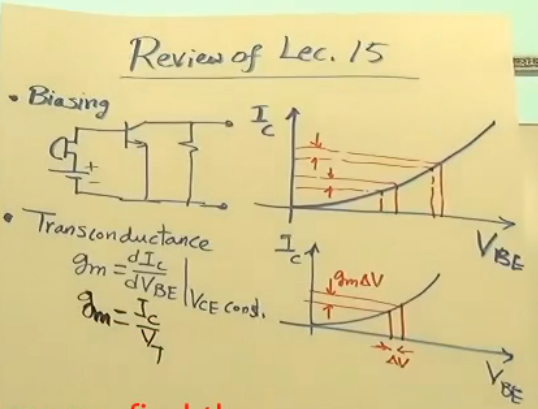 Review of Lec. 15
• Biasing
I_C
+
−
V_BE
• Transconductance
g_m = dI_C / dV_BE | V_CE const.
g_m = I_C / V_T
I_C
g_mΔV
ΔV
V_BE